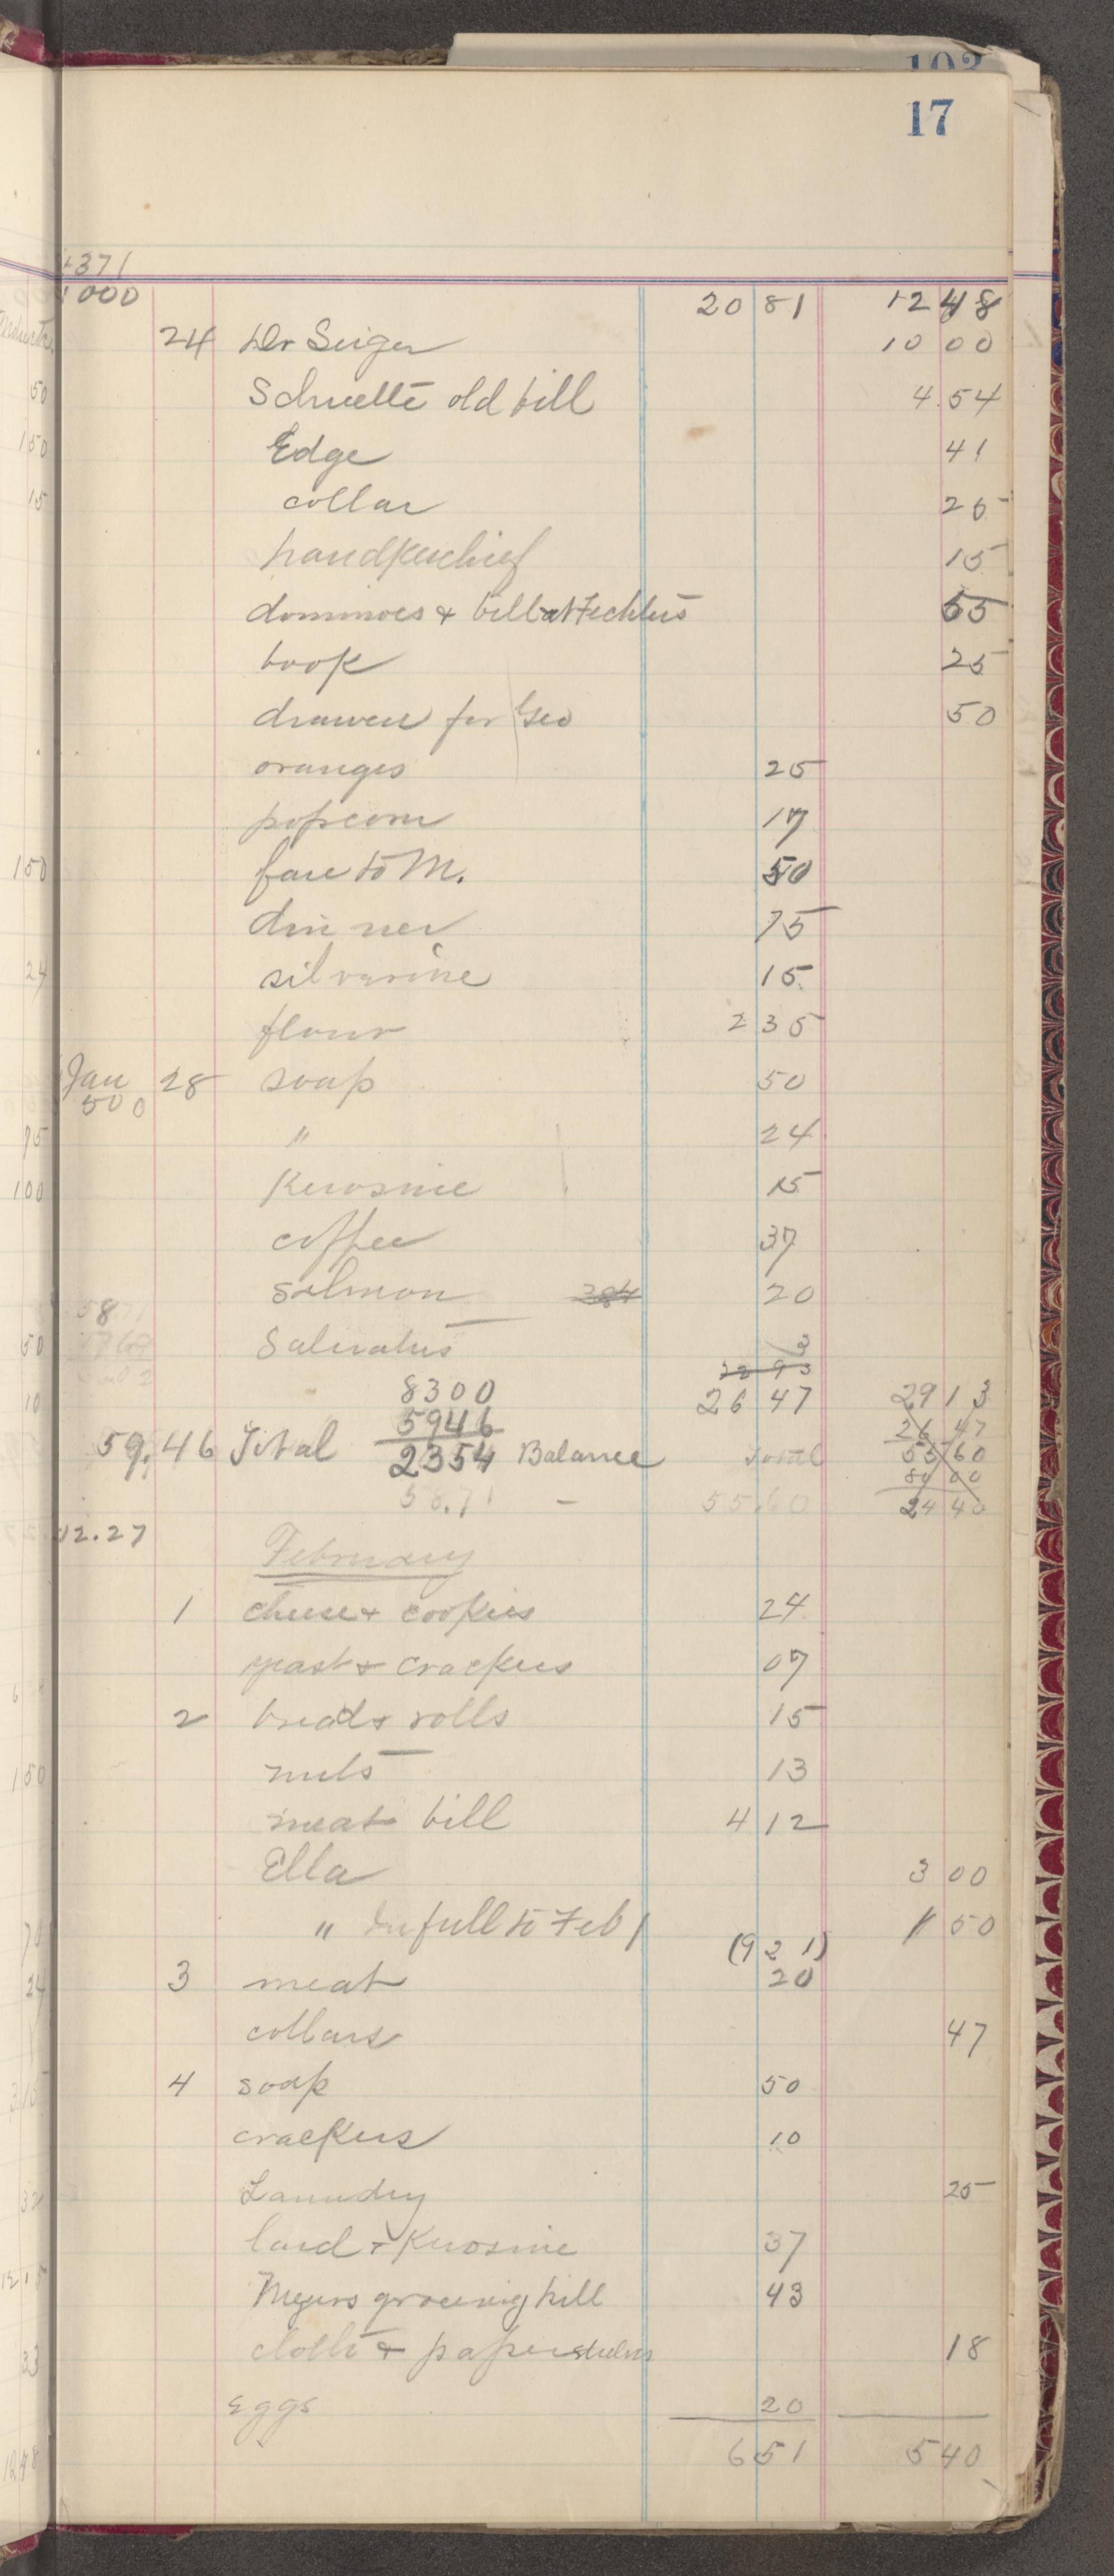 103
17
1371
1000 20 81 12 48
24 Dr Seiger 10 00
Schuette old bill 4.54
Edge 41
collar 25
handkerchief 15
dominoes & bill at Fechters 55
book 25
drawers for Geo 50
oranges 25
popcorn 17
fare to M. 50
dinner 75
silverine 15
flour 2 35
Jan 28 soap 50
500
" 24
Kerosine 15
coffee 37
salmon 384 20
Saleratus 3
8300 26 47 29 13
5946 26 47
59.46 Total 2354 Balance Total 55 60
80 00
58.71 — 55.60 24 40
12.27
February
1 cheese & cookies 24
yeast & crackers 07
2 bread & rolls 15
nuts 13
meat bill 4 12
Ella 3 00
" In full to Feb 1 1 50
(9 21)
3 meat 20
collars 47
4 soap 50
crackers 10
Laundry 25
lard & Kerosine 37
Myers grocery bill 43
cloth & paper 18
Eggs 20
6 51 5 40